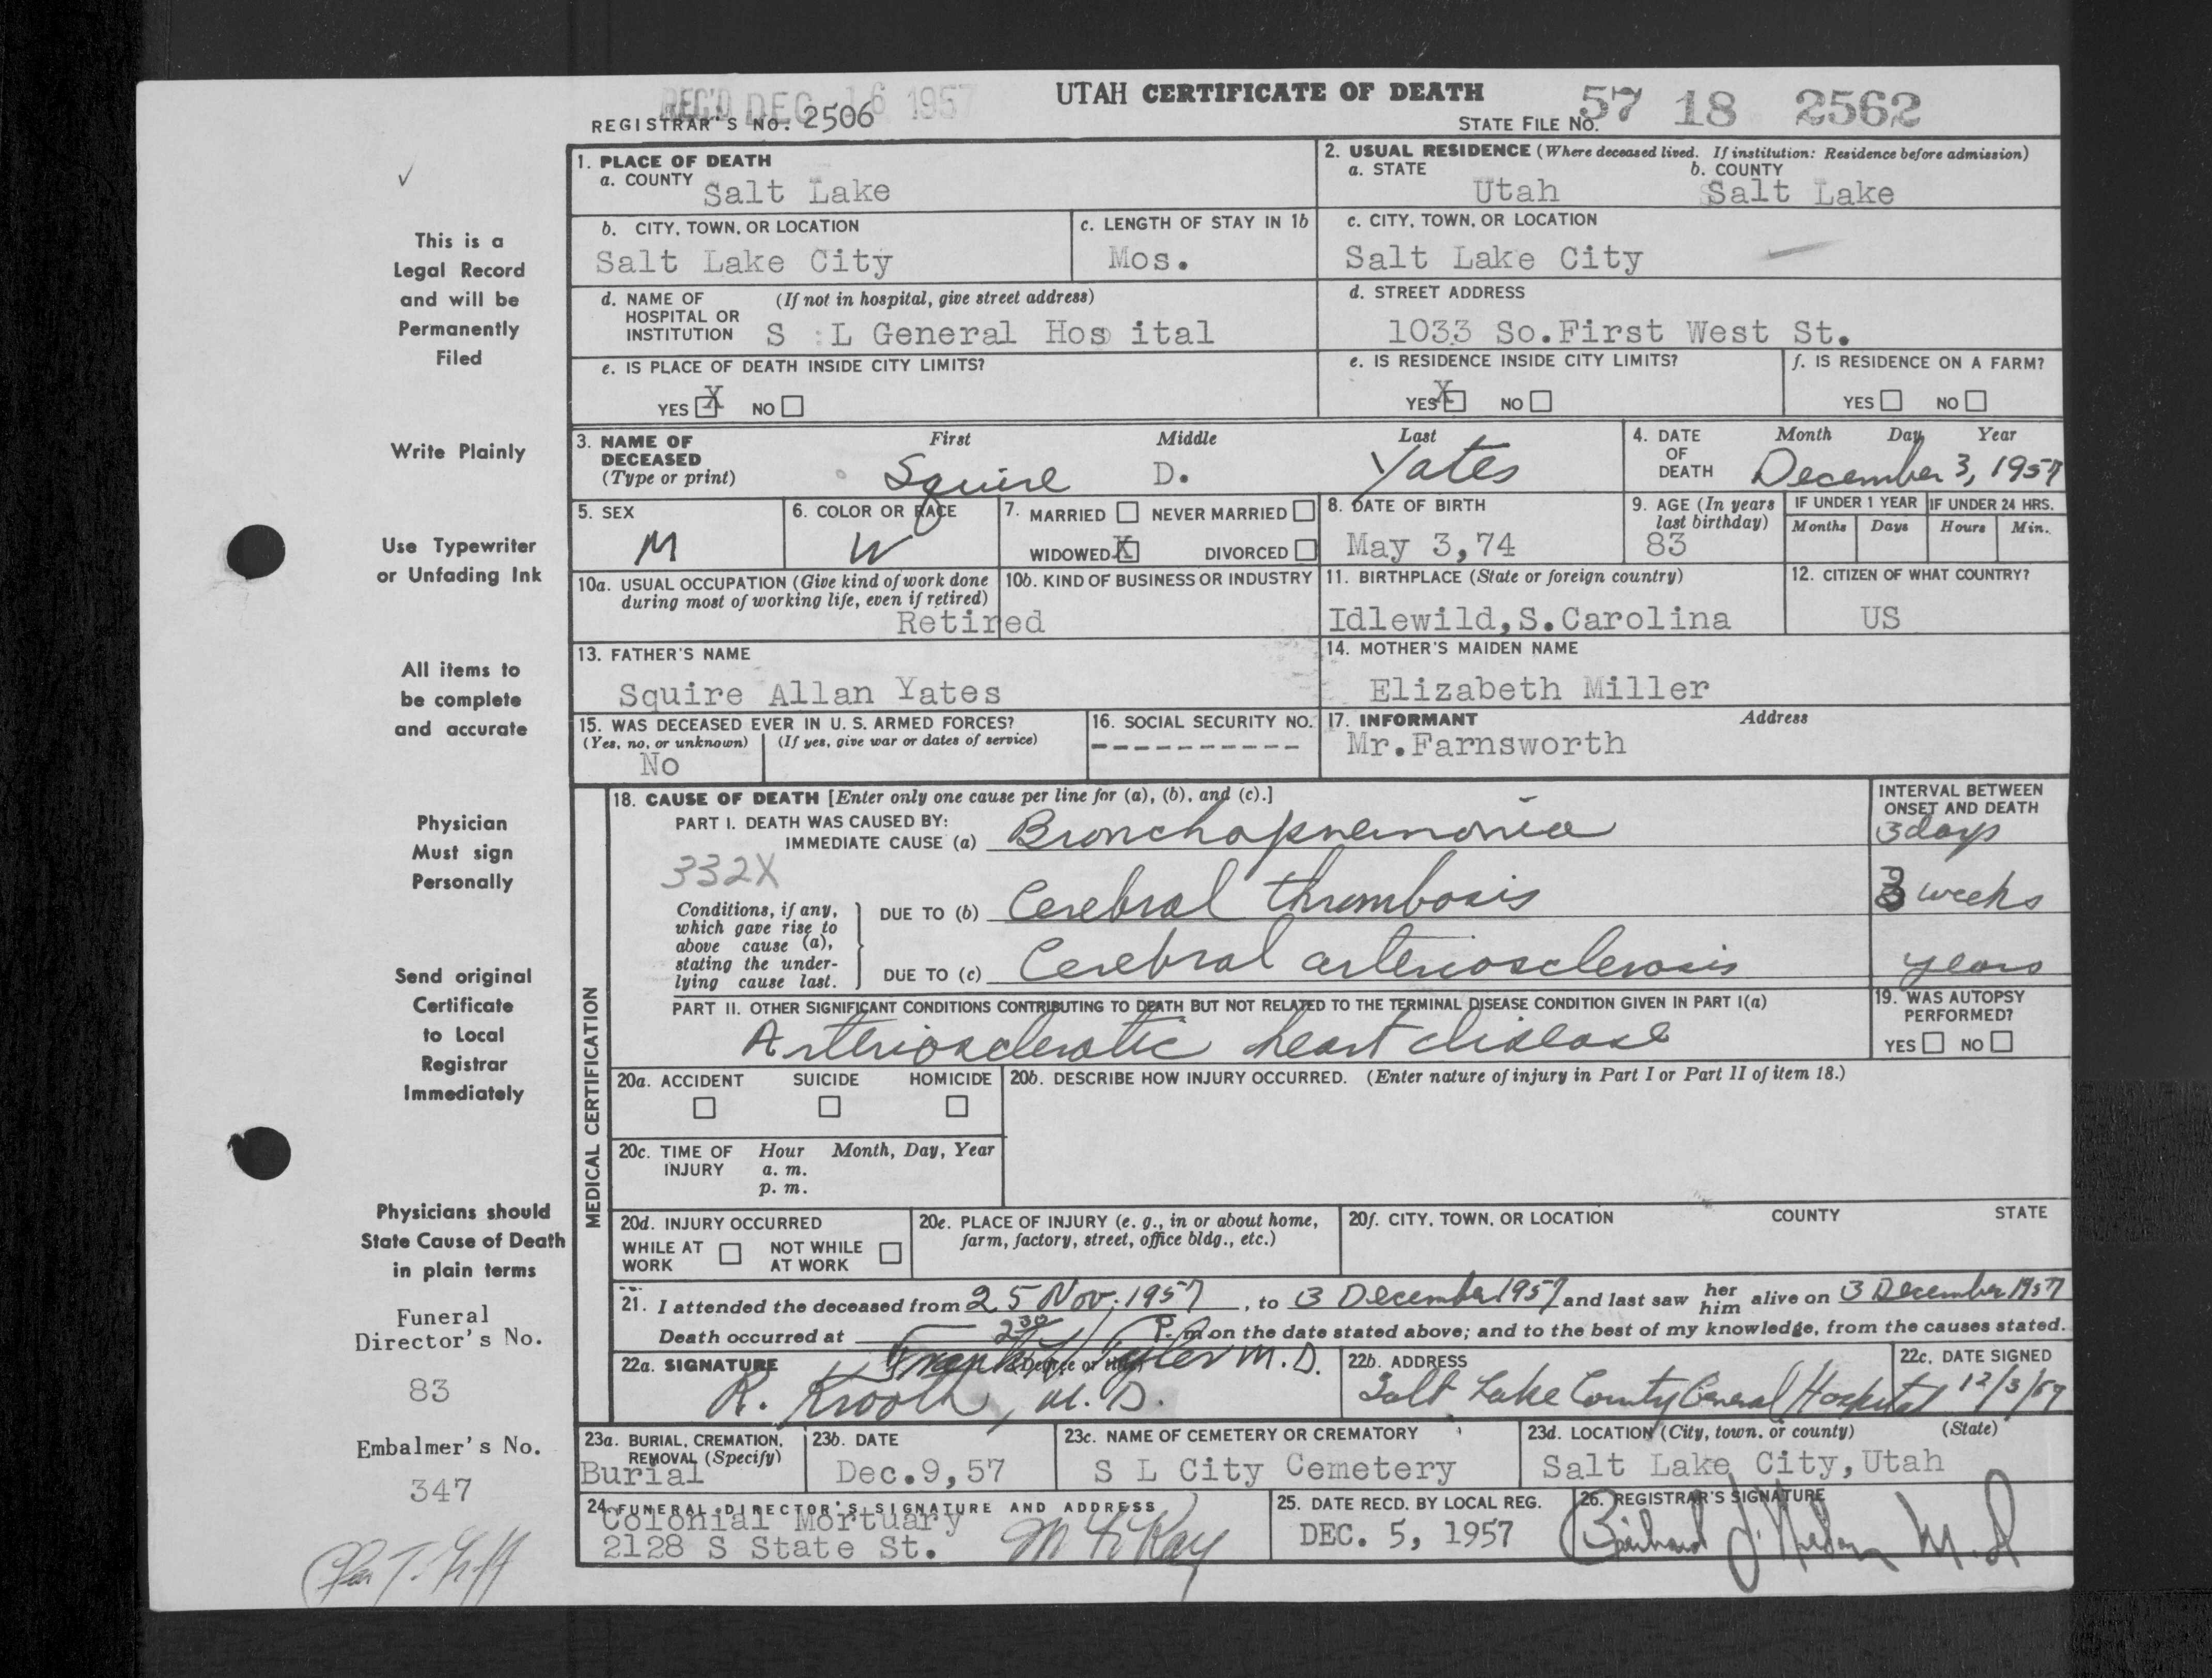 REC'D DEC 16 1957
UTAH CERTIFICATE OF DEATH
REGISTRAR'S NO. 2506
STATE FILE NO. 57 18 2562
1. PLACE OF DEATH
a. COUNTY Salt Lake
2. USUAL RESIDENCE (Where deceased lived. If institution: Residence before admission)
a. STATE Utah b. COUNTY Salt Lake
b. CITY, TOWN, OR LOCATION Salt Lake City
c. LENGTH OF STAY IN 1b Mos.
c. CITY, TOWN, OR LOCATION Salt Lake City
d. NAME OF HOSPITAL OR INSTITUTION (If not in hospital, give street address) S L General Hos ital
d. STREET ADDRESS 1033 So.First West St.
e. IS PLACE OF DEATH INSIDE CITY LIMITS?
YES X NO
e. IS RESIDENCE INSIDE CITY LIMITS?
YES X NO
f. IS RESIDENCE ON A FARM?
YES NO
3. NAME OF DECEASED (Type or print)
First Middle Last
Squire D. Yates
4. DATE OF DEATH Month Day Year
December 3, 1957
5. SEX M
6. COLOR OR RACE W
7. MARRIED NEVER MARRIED
WIDOWED X DIVORCED
8. DATE OF BIRTH May 3,74
9. AGE (In years last birthday) 83
IF UNDER 1 YEAR Months Days
IF UNDER 24 HRS. Hours Min.
10a. USUAL OCCUPATION (Give kind of work done during most of working life, even if retired) Retired
10b. KIND OF BUSINESS OR INDUSTRY
11. BIRTHPLACE (State or foreign country) Idlewild,S.Carolina
12. CITIZEN OF WHAT COUNTRY? US
13. FATHER'S NAME Squire Allan Yates
14. MOTHER'S MAIDEN NAME Elizabeth Miller
15. WAS DECEASED EVER IN U. S. ARMED FORCES?
(Yes, no, or unknown) (If yes, give war or dates of service)
No
16. SOCIAL SECURITY NO. ----------
17. INFORMANT Address
Mr.Farnsworth
MEDICAL CERTIFICATION
18. CAUSE OF DEATH [Enter only one cause per line for (a), (b), and (c).]
INTERVAL BETWEEN ONSET AND DEATH
PART I. DEATH WAS CAUSED BY:
IMMEDIATE CAUSE (a) Bronchopneumonia 3 days
332X
Conditions, if any, which gave rise to above cause (a), stating the underlying cause last.
DUE TO (b) Cerebral thrombosis 3 weeks
DUE TO (c) Cerebral arteriosclerosis years
PART II. OTHER SIGNIFICANT CONDITIONS CONTRIBUTING TO DEATH BUT NOT RELATED TO THE TERMINAL DISEASE CONDITION GIVEN IN PART I(a)
Arteriosclerotic heart disease
19. WAS AUTOPSY PERFORMED?
YES NO
20a. ACCIDENT SUICIDE HOMICIDE
20b. DESCRIBE HOW INJURY OCCURRED. (Enter nature of injury in Part I or Part II of item 18.)
20c. TIME OF INJURY Hour Month, Day, Year
a. m.
p. m.
20d. INJURY OCCURRED
WHILE AT WORK NOT WHILE AT WORK
20e. PLACE OF INJURY (e. g., in or about home, farm, factory, street, office bldg., etc.)
20f. CITY, TOWN, OR LOCATION COUNTY STATE
21. I attended the deceased from 25 Nov. 1957, to 3 December 1957 and last saw her him alive on 3 December 1957
Death occurred at 2 30 P. m on the date stated above; and to the best of my knowledge, from the causes stated.
22a. SIGNATURE (Degree or title) Frank Tyler M.D.
R. Krooth, M.D.
22b. ADDRESS Salt Lake County General Hospital
22c. DATE SIGNED 12/3/57
23a. BURIAL, CREMATION, REMOVAL (Specify) Burial
23b. DATE Dec.9,57
23c. NAME OF CEMETERY OR CREMATORY S L City Cemetery
23d. LOCATION (City, town, or county) (State) Salt Lake City,Utah
24. FUNERAL DIRECTOR'S SIGNATURE AND ADDRESS
Colonial Mortuary
2128 S State St.
25. DATE RECD. BY LOCAL REG. DEC. 5, 1957
26. REGISTRAR'S SIGNATURE
M.D.
This is a
Legal Record
and will be
Permanently
Filed
Write Plainly
Use Typewriter
or Unfading Ink
All items to
be complete
and accurate
Physician
Must sign
Personally
Send original
Certificate
to Local
Registrar
Immediately
Physicians should
State Cause of Death
in plain terms
Funeral
Director's No.
83
Embalmer's No.
347